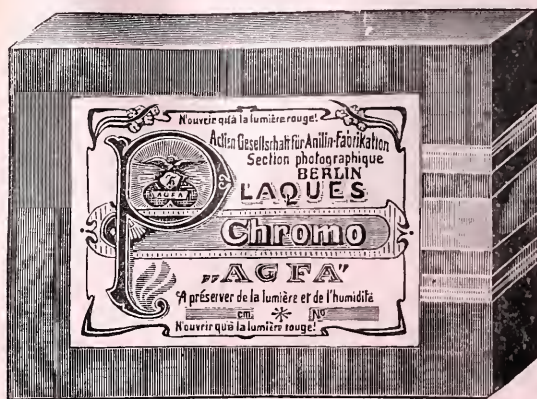 N'ouvrir qu'à la lumière rouge!
Actien Gesellschaft für Anilin-Fabrikation
Section photographique
BERLIN
AGFA
PLAQUES
Chromo
„AGFA”
A préserver de la lumière et de l'humidité
cm. No
N'ouvrir qu'à la lumière rouge!